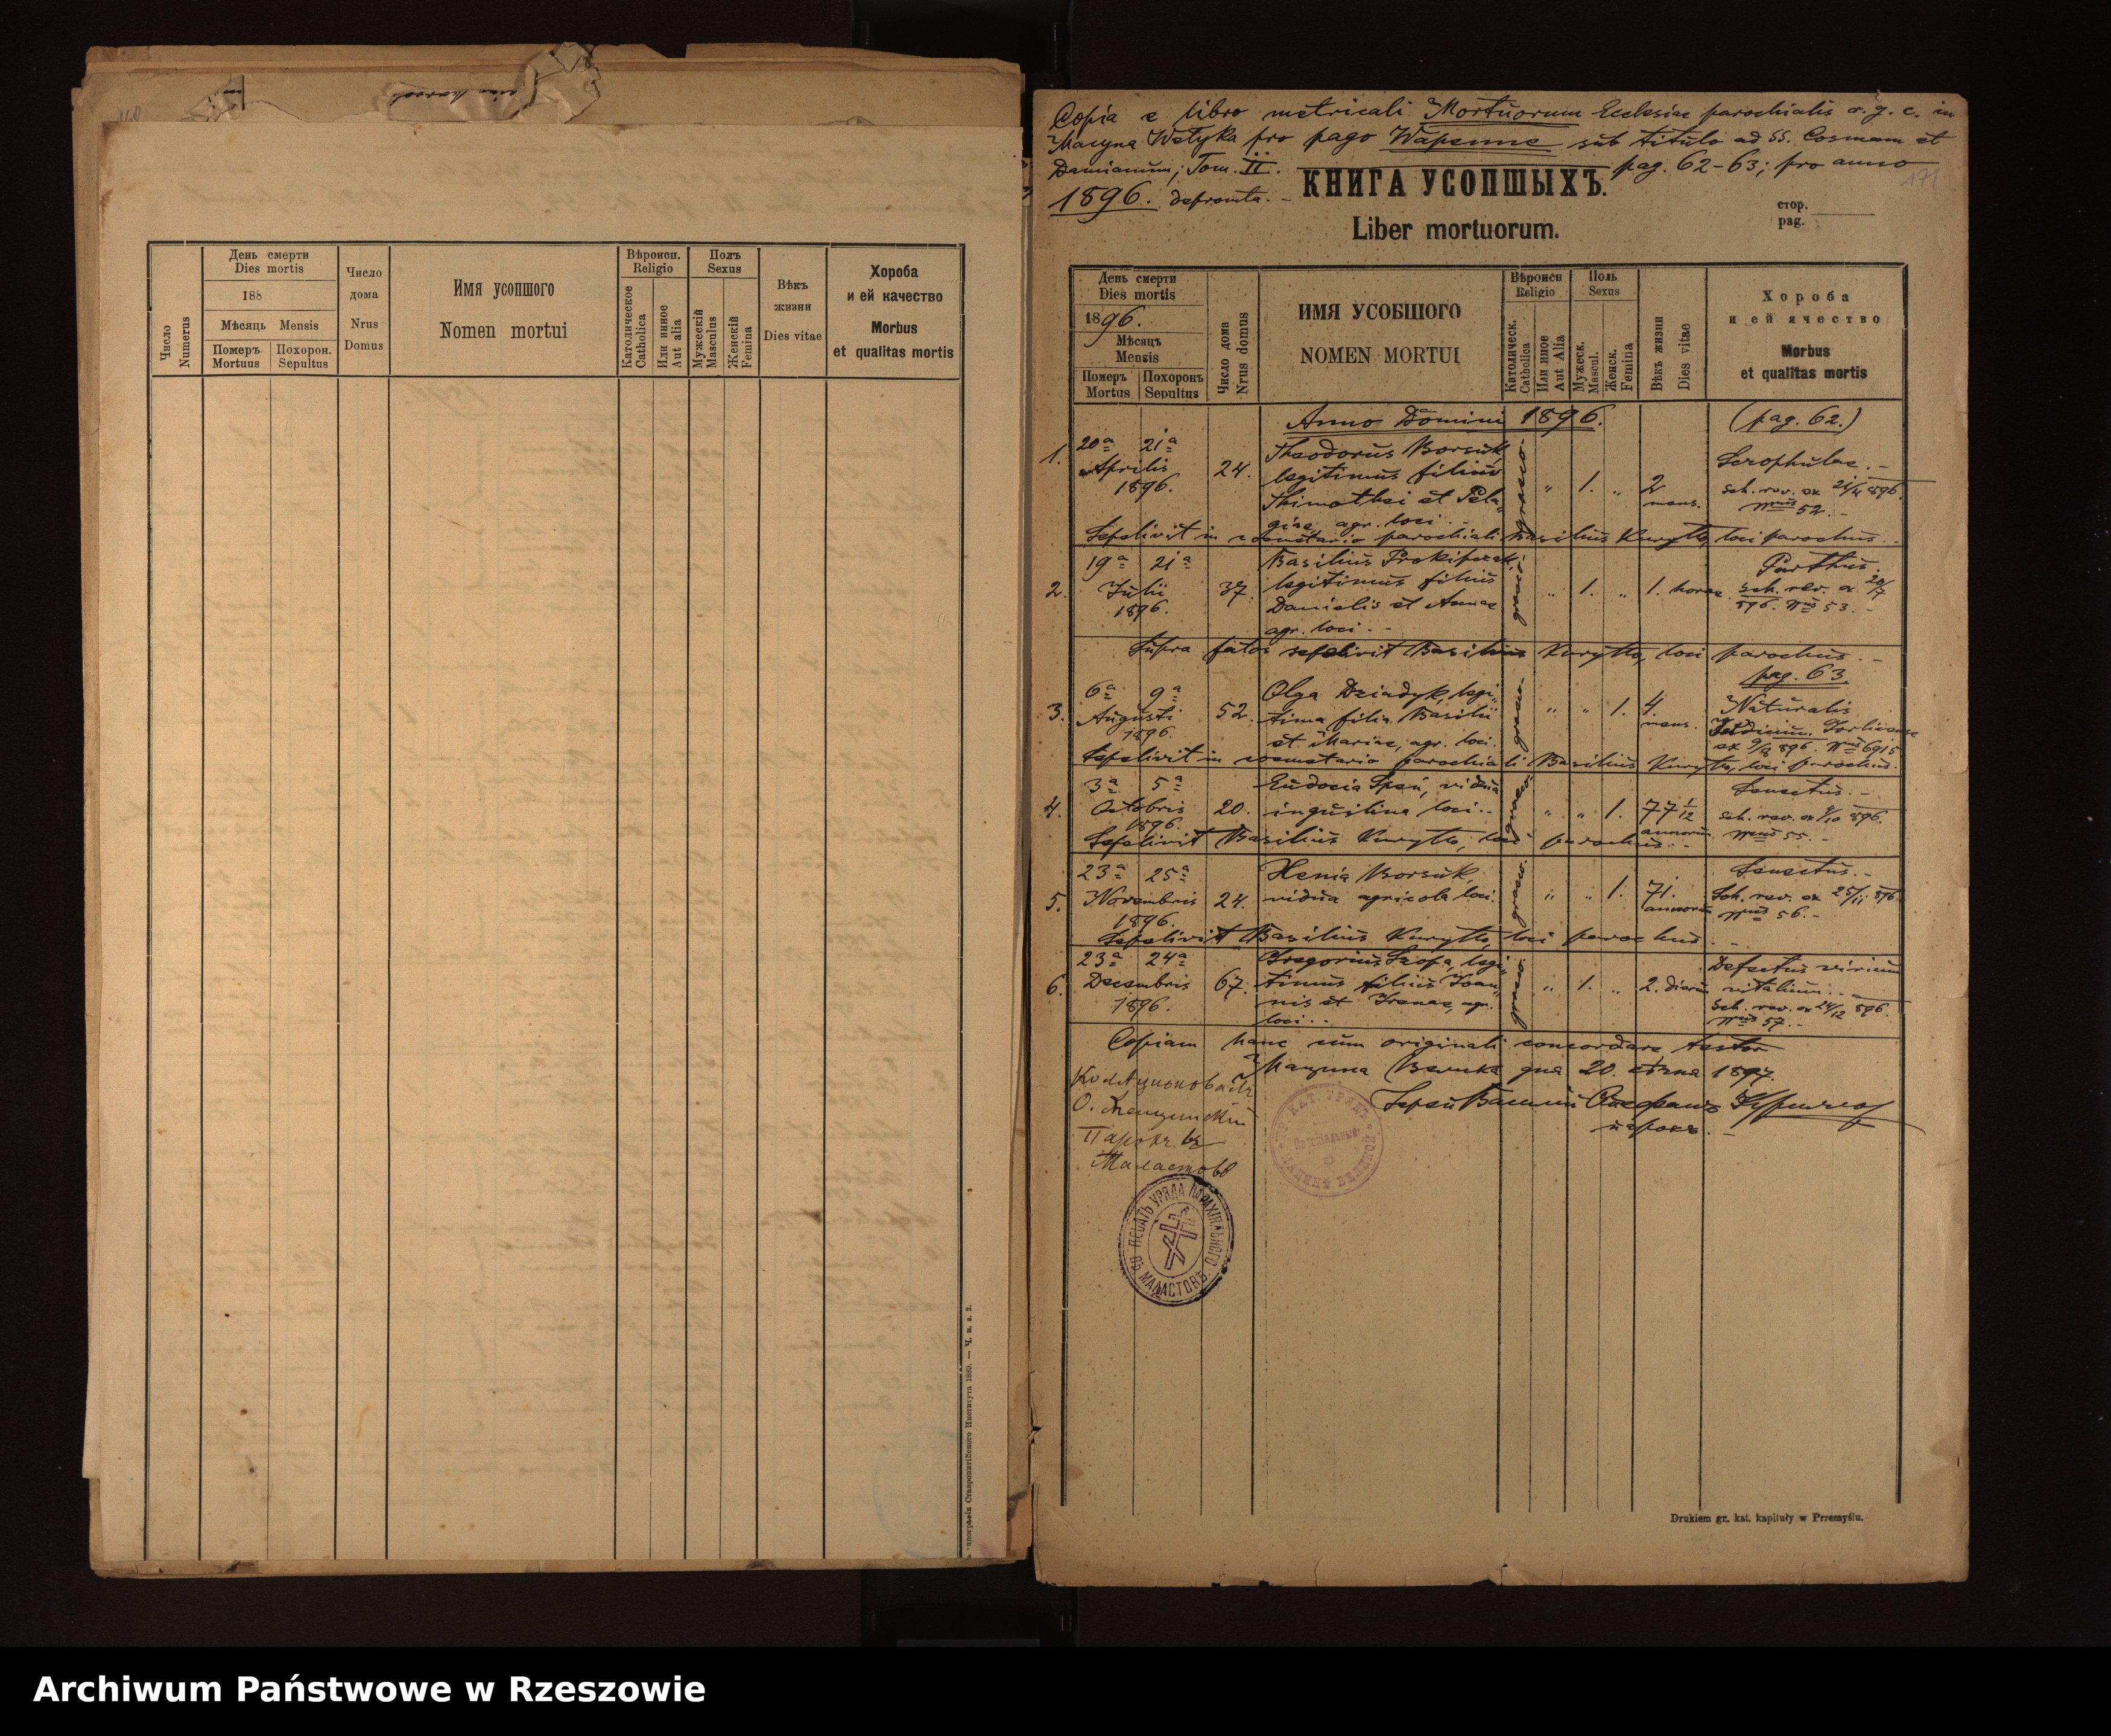 Число
Numerus
День смерти
Dies mortis
188
Мѣсяць Mensis
Померъ Похорон.
Mortuus Sepultus
Число
дома
Nrus
Domus
Имя усопшого
Nomen mortui
Вѣроисп.
Religio
Католическое
Catholica
Или иное
Aut alia
Полъ
Sexus
Мужескій
Masculus
Женскій
Femina
Вѣкъ
жизни
Dies vitae
Хороба
и ей качество
Morbus
et qualitas mortis
Ставропигійского Института 1889. — Ч. в. з. 2.
Copia e libro metricali Mortuorum Ecclesiae parochialis r. g. c. in
Macyna Welyka pro pago Wapenne sub titulo ad SS. Cosmam et
Damianum; Tom. II. pag. 62-63; pro anno
1896. depromta. -
171
КНИГА УСОПШЫХЪ.
Liber mortuorum.
стор.
pag.
День смерти
Dies mortis
1896.
Мѣсяцъ
Mensis
Померъ Похоронъ
Mortus Sepultus
Число дома
Nrus domus
ИМЯ УСОБШОГО
NOMEN MORTUI
Вѣроисп
Religio
Католическ.
Catholica
Или иное
Aut Alia
Поль
Sexus
Мужеск.
Mascul.
Женск.
Femina
Вѣкъ жизни
Dies vitae
Хороба
и ей ячество
Morbus
et qualitas mortis
Anno Domini 1896. (pag. 62.)
1. 20a 21a
Aprilis
1896.
24.
Theodorus Borsuk,
legitimus filius
Thimothei et Pela-
giae, agr. loci. -
graeco-
" 1. " 2
mens.
Scrophulae. -
sch. rev. ex 21/4 896.
Nrus 52. -
Sepelivit in coemetario parochiali Basilius Kuryłło, loci parochus. -
2. 19a 21a
Julii
1896.
37.
Basilius Prokipczak,
legitimus filius
Danielis et Annae
agr. loci. -
graeco.
" 1. " 1. horae.
Parthus.
sch. rev. ex 20/7
896. Nrus 53. -
Supra fatos sepelivit Basilius Kuryłło, loci parochus. -
pag. 63.
3. 6a 9a
Augusti
1896.
52.
Olga Dziadyk, legi-
tima filia Basilii
et Mariae, agr. loci.
graeco-
" " 1. 4.
mens.
Naturalis
Judicium Gorlicense
ex 9/8 896. Nrus 6915
Sepelivit in coemetario parochiali Basilius Kuryłło, loci parochus.
4. 3a 5a
Octobris
1896.
20.
Eudocia Spsu, vidua
inquilina loci. -
graeco
" " 1. 77 1/12
annorum
Senectus. -
sch. rev. ex 5/10 896.
Nrus 55. -
Sepelivit Basilius Kuryłło, loci parochus. -
5. 23a 25a
Novembris
1896.
24.
Henia Borsuk,
vidua agricola loci.
graeco.
" " 1. 71.
annorum
Senectus. -
Sch. rev. ex 25/11 896
Nrus 56. -
Sepelivit Basilius Kuryłło, loci parochus. -
6. 23a 24a
Decembris
1896.
67.
Gregorius Szopa, legi-
timus filius Joan-
nis et Irenae, agr.
loci. -
graeco.
" 1. " 2. dierum
Defectus virium
vitalium. -
Sch. rev. ex 24/12 896.
Nrus 57. -
Copiam hanc cum originali concordare testor
Мацина Велика дня 20. 1897.
Василий Курилло
парохъ. -
О.
Парохъ въ
Маластовѣ
ПЕЧАТЬ УРЯДА ПАРОХІАЛЬНОГО
ВЪ МАЛАСТОВѢ
Drukiem gr. kat. kapituły w Przemyślu.
Archiwum Państwowe w Rzeszowie